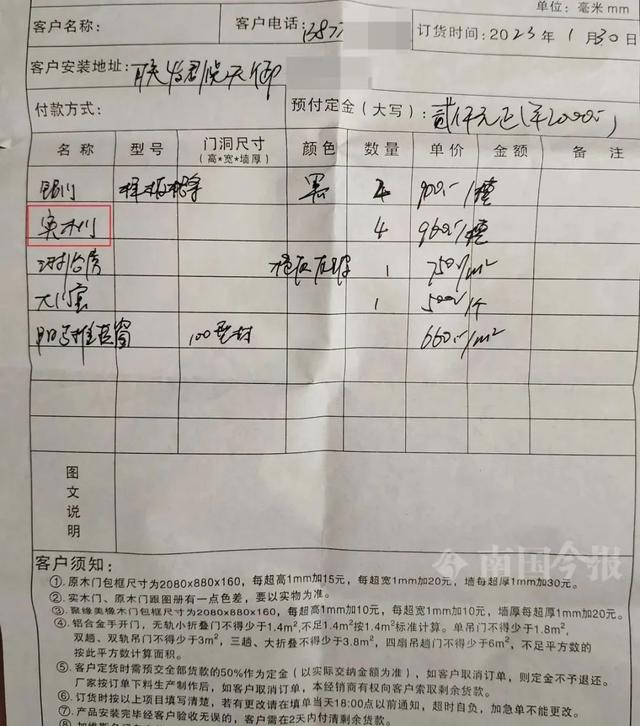 单位：毫米mm
客户名称： 客户电话：1387 订货时间：2023年1月30日
客户安装地址：联发君悦天御
付款方式： 预付定金（大写）：贰仟元正（￥2000.-）
名称 型号 门洞尺寸 颜色 数量 单价 金额 备注
（高*宽*墙厚）
铝门 黑 4 900.-/樘
实木门 4 960.-/樘
淋浴房 1 750/m²
大门宝 1 500/个
阳台推拉窗 100型材 660.-/m²
图文说明
南国今报
客户须知：
①. 原木门包框尺寸为2080x880x160，每超高1mm加15元，每超宽1mm加20元，墙每超厚1mm加30元。
②. 实木门、原木门跟图册有一点色差，要以实物为准。
③. 聚缘美橡木门包框尺寸为2080x880x160，每超高1mm加10元，每超宽1mm加10元，墙厚每超厚1mm加20元。
④. 铝合金手开门，无轨小折叠门不得少于1.4m²,不足1.4m²按1.4m²标准计算。单吊门不得少于1.8m²，
双趟、双轨吊门不得少于3m²，三趟、大折叠不得少于3.8m²，四扇吊趟门不得少于6m²，不足平方数的
按此平方数计算面积。
⑤. 客户定货时需预交全部货款的50%作为定金（以实际交纳金额为准），如客户取消订单，则定金不予退还。
厂家按订单下料生产制作后，如客户取消订单，本经销商有权向客户索取剩余货款。
⑥. 订货时按以上项目填写清楚，若有更改请在填单当天18:00点以前通知，超时自负，加急单不能更改。
⑦. 产品安装完毕经客户验收无误的，客户需在2天内付清剩余货款。